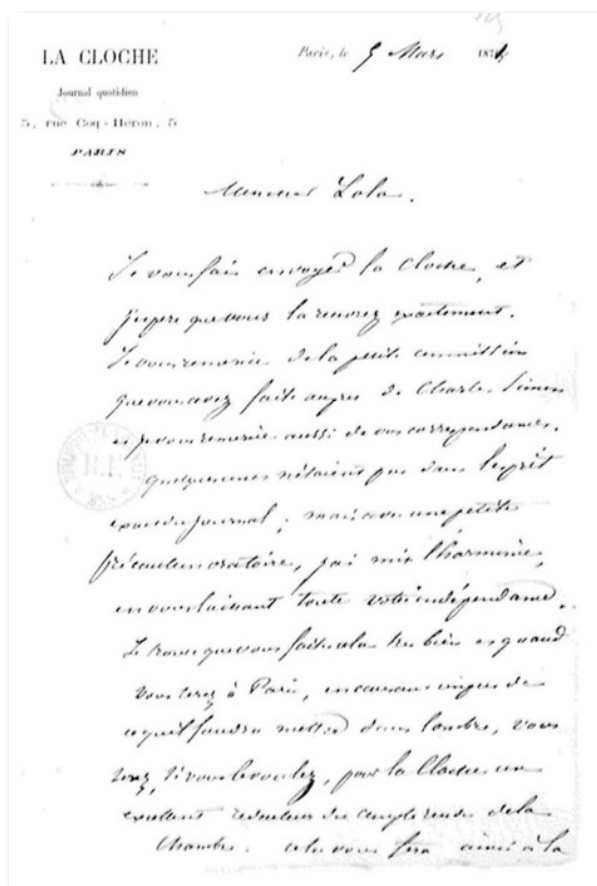 LA CLOCHE
Journal quotidien
5, rue Coq-Héron, 5
PARIS
Paris, le 5 Mars 1871
Monsieur Zola.
Je vous fais envoyer la Cloche, et
j'espère que vous la recevez exactement.
Je vous remercie de la petite commission
que vous avez faite auprès de Charles Simon
et je vous remercie aussi de vos correspondances.
quelques unes n'étaient pas dans l'esprit
exact du journal ; mais avec une petite
précaution oratoire, j'ai mis l'harmonie,
en vous laissant toute votre indépendance.
Je trouve que vous faites cela très bien et quand
vous serez à Paris, en causant un peu de
ce qu'il faudra mettre dans l'ombre, vous
serez, si vous le voulez, pour la Cloche un
excellent rédacteur du compte rendu de la
Chambre. Cela vous fera à la